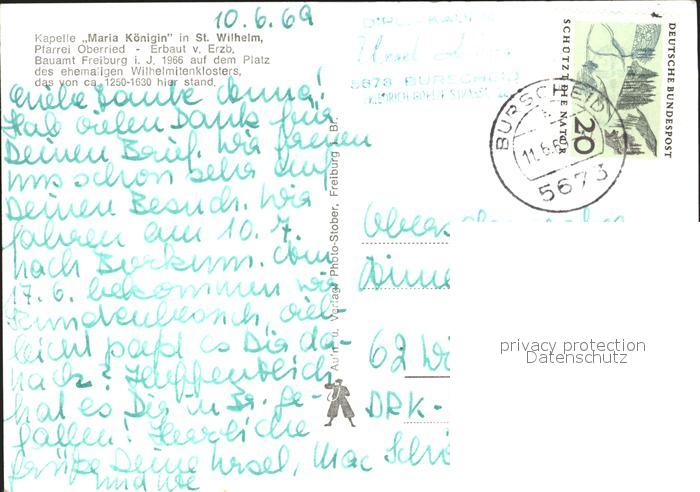 10.6.69
Kapelle „Maria Königin" in St. Wilhelm,
Pfarrei Oberried - Erbaut v. Erzb.
Bauamt Freiburg i. J. 1966 auf dem Platz
des ehemaligen Wilhelmitenklosters,
das von ca. 1250-1630 hier stand.
Liebe Tante Anna!
Hab vielen Dank für
Deinen Brief. Wir freuen
uns schon sehr auf
Deinen Besuch. Wir
fahren am 10.7.
nach Borkum. Am
17.6. bekommen wir
Kundenbesuch, viel-
leicht paßt es Dir da-
nach? Hoffentlich
hat es Dir in Br. ge-
fallen! Herzliche
Grüße Deine Ursel, Mac
und
Aufn. u. Verlag Photo-Stober, Freiburg i. Br.
5673 BURSCHEID
DEUTSCHE BUNDESPOST
SCHÜTZT DIE NATUR
20
BURSCHEID
11.6.69
5673
62 Wi
DRK-
privacy protection
Datenschutz